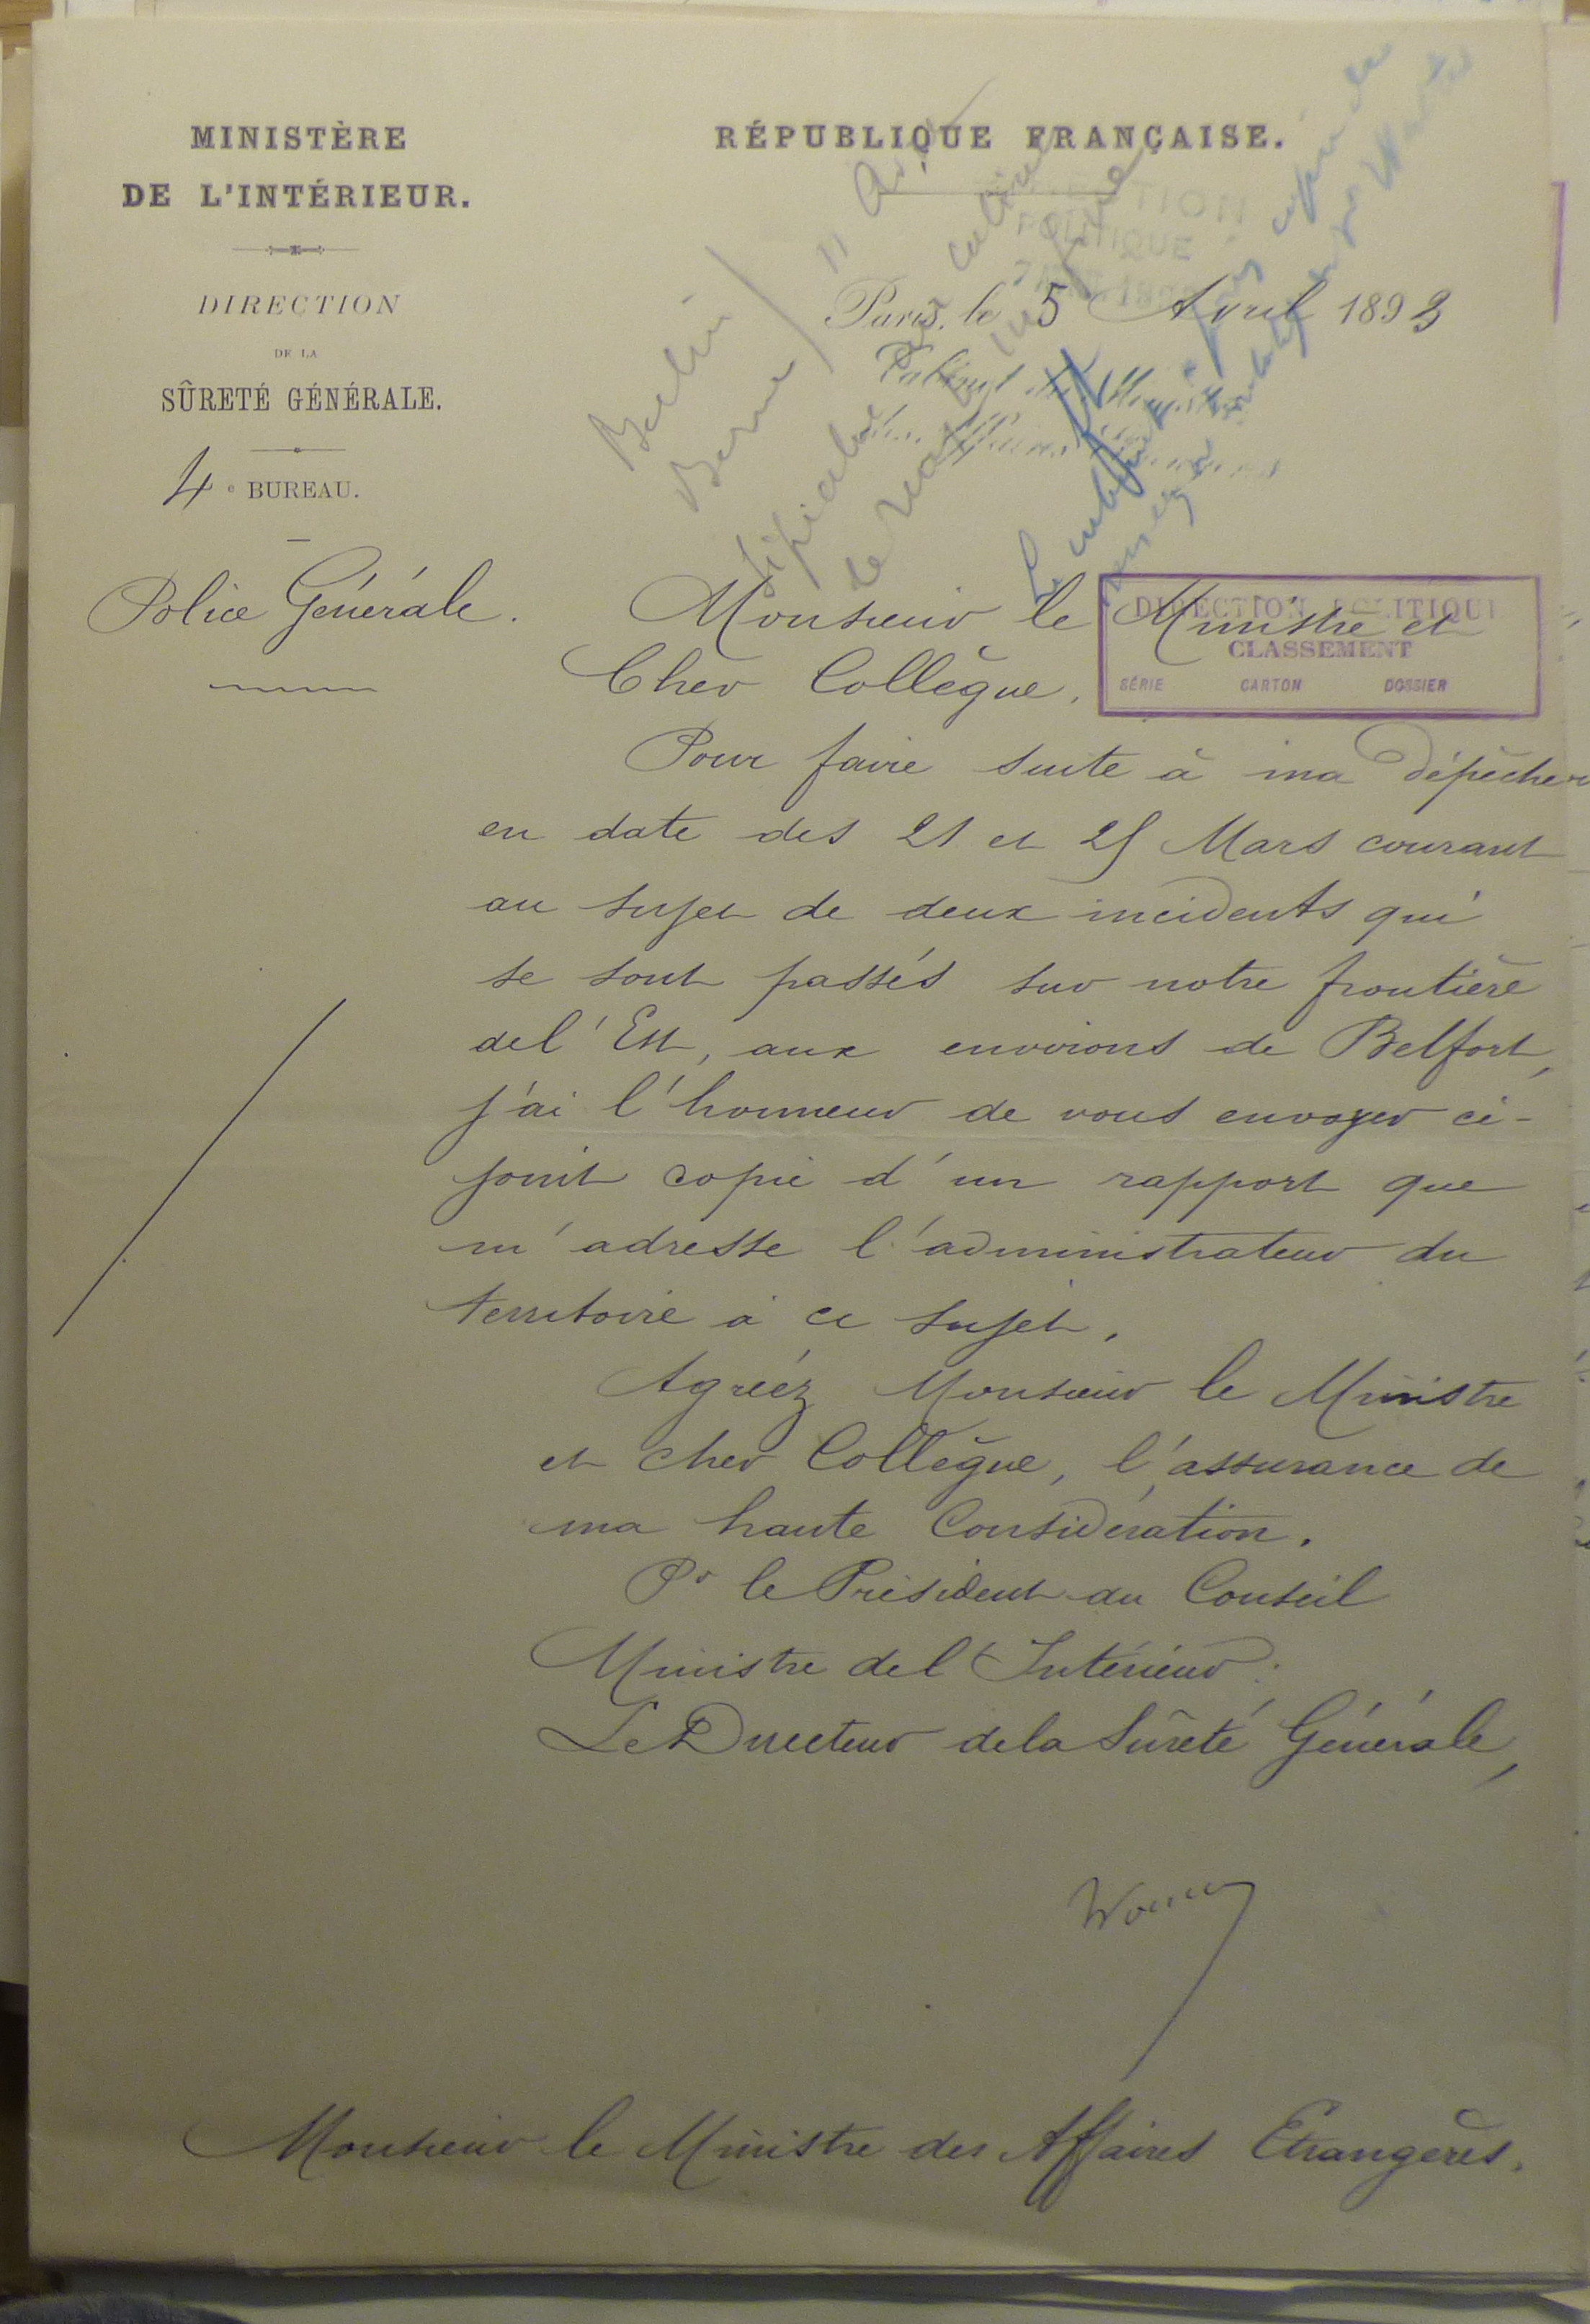 MINISTÈRE
DE L'INTÉRIEUR.
DIRECTION
DE LA
SÛRETÉ GÉNÉRALE.
4e BUREAU.
Police Générale.
RÉPUBLIQUE FRANÇAISE.
DIRECTION
POLITIQUE
Berlin
Berne
11
Paris, le 5 Avril 1893
DIRECTION POLITIQUE
CLASSEMENT
SÉRIE CARTON DOSSIER
Monsieur le Ministre et
Cher Collègue,
Pour faire suite à ma dépêche
en date des 21 et 25 Mars courant
au sujet de deux incidents qui
se sont passés sur notre frontière
de l'Est, aux environs de Belfort,
j'ai l'honneur de vous envoyer ci-
joint copie d'un rapport que
m'adresse l'administrateur du
territoire à ce sujet.
Agréez Monsieur le Ministre
et cher Collègue, l'assurance de
ma haute Considération.
Pr le Président du Conseil
Ministre de l'Intérieur:
Le Directeur de la Sûreté Générale,
Monsieur le Ministre des Affaires Etrangères.